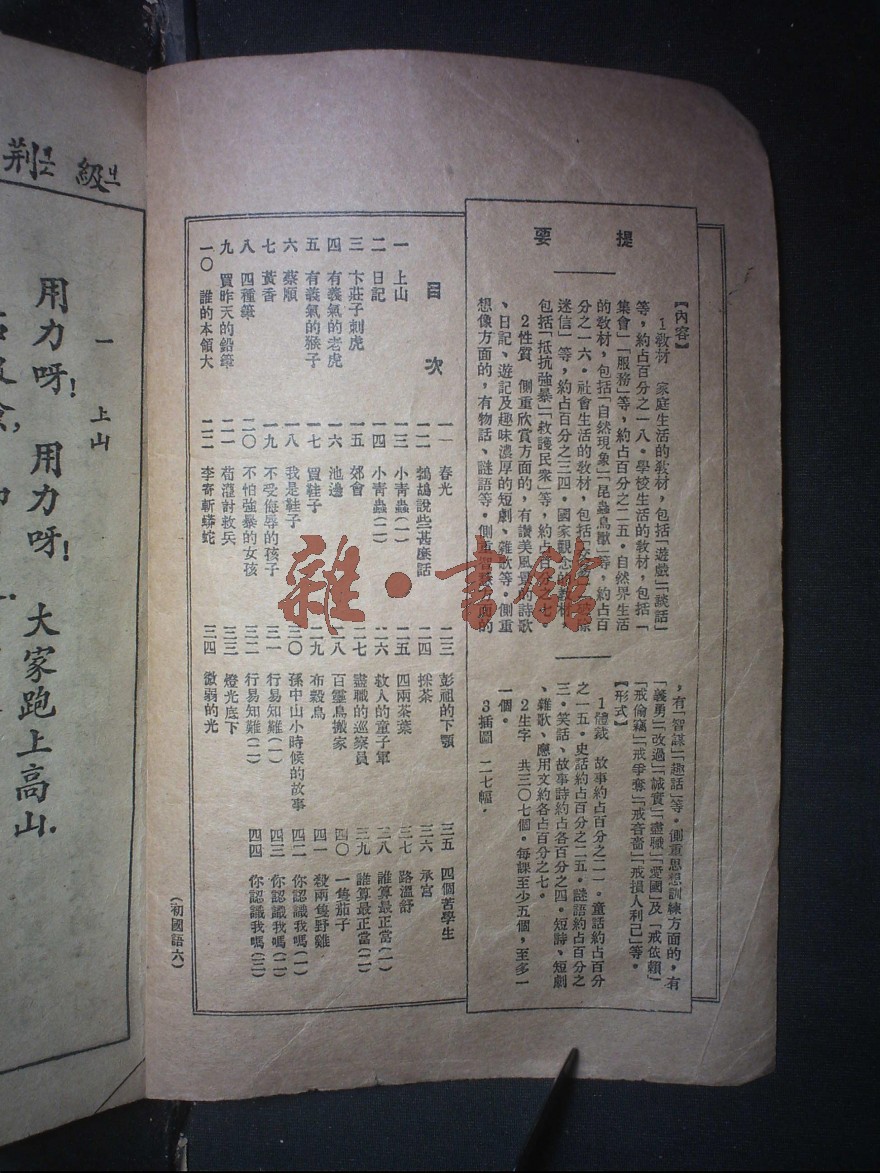 提要
【內容】
1敎材　家庭生活的敎材，包括「遊戲」「談話」
等，約占百分之一八。學校生活的敎材，包括「
集會」「服務」等，約占百分之二五。自然界生活
的敎材，包括「自然現象」「昆蟲鳥獸」等，約占百
分之一六。社會生活的敎材，包括
迷信」等，約占百分之三四。國家觀念的敎材，
包括「抵抗強暴」「救護民衆」等，約占百分之七。
2性質　側重欣賞方面的，有讚美風景的詩歌
、日記、遊記及趣味濃厚的短劇、雜歌等。側重
想像方面的，有物話、謎語等。側重智慧方面的
，有「智謀」「趣話」等。側重思想訓練方面的，有
「義勇」「改過」「誠實」「盡職」「愛國」及「戒依賴」
「戒偷竊」「戒爭奪」「戒吝嗇」「戒損人利己」等。
【形式】
1體裁　故事約占百分之二一。童話約占百分
之一五。史話約占百分之二五。謎語約占百分之
三。笑話、故事詩約占各百分之四。短詩、短劇
、雜歌、應用文約各占百分之七。
2生字　共三〇七個。每課至少五個，至多一
一個。
3插圖　二七幅。
目次
一　上山
二　日記
三　卞莊子刺虎
四　有義氣的老虎
五　有義氣的猴子
六　蔡順
七　黃香
八　四種筆
九　買昨天的鉛筆
一〇　誰的本領大
一一　春光
一二　鷓鴣說些甚麼話
一三　小靑蟲(一)
一四　小靑蟲(二)
一五　郊會
一六　池邊
一七　買鞋子
一八　我是鞋子
一九　不受侮辱的孩子
二〇　不怕強暴的女孩
二一　荀灌討救兵
二二　李寄斬蟒蛇
二三　彭祖的下顎
二四　採茶
二五　四兩茶葉
二六　救人的童子軍
二七　盡職的巡察員
二八　百靈鳥搬家
二九　布穀鳥
三〇　孫中山小時候的故事
三一　行易知難(一)
三二　行易知難(二)
三三　燈光底下
三四　微弱的光
三五　四個苦學生
三六　承宮
三七　路溫舒
三八　誰算最正當(一)
三九　誰算最正當(二)
四〇　一隻茄子
四一　殺兩隻野雞
四二　你認識我嗎(一)
四三　你認識我嗎(二)
四四　你認識我嗎(三)
(初國語六)
級
荆
一　上山
用力呀！用力呀！
大家跑上高山．
雜·書館